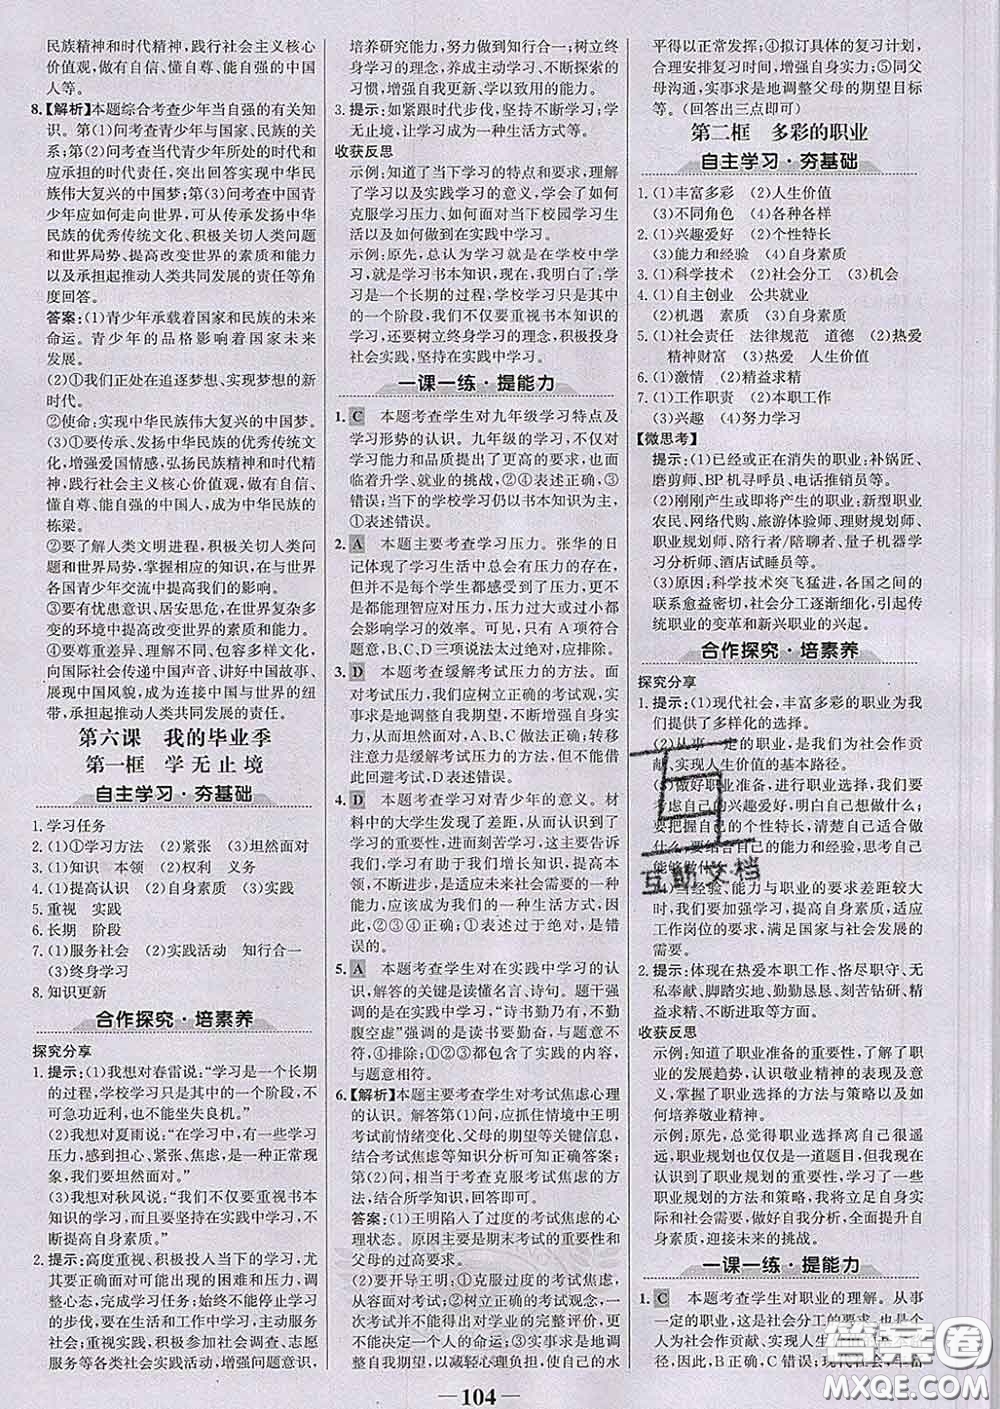 民族精神和时代精神,践行社会主义核心
价值观,做有自信、懂自尊、能自强的中国
人等。
8.【解析】本题综合考查少年当自强的有关知
识。第(1)问考查青少年与国家、民族的关
系;第(2)问考查当代青少年所处的时代和
应承担的责任,突出回答实现中华
民族伟大复兴的中国梦;第(3)问考查中国青
少年应如何走向世界,可从传承发扬中华
民族的优秀传统文化、积极关切人类问题
和世界局势、提高改变世界的素质和能力
以及承担起推动人类共同发展的责任等角
度回答。
答案:(1)青少年承载着国家和民族的未来
命运。青少年的品格影响着国家未来
发展。
(2)①我们正处在追逐梦想、实现梦想的新
时代。
②使命:实现中华民族伟大复兴的中国梦。
(3)①要传承、发扬中华民族的优秀传统文
化,增强爱国情感,弘扬民族精神和时代精
神,践行社会主义核心价值观,做有自信、
懂自尊、能自强的中国人,成为中华民族的
栋梁。
②要了解人类文明进程,积极关切人类问
题和世界局势,掌握相应的知识,在与世界
各国青少年交流中提高我们的影响。
③要有忧患意识、居安思危,在世界复杂多
变的环境中提高改变世界的素质和能力。
④要尊重差异、理解多样,以开放的胸怀,
向国际社会传递中国声音、讲好中国故事、
展现中国风貌,成为连接中国与世界的纽
带,承担起推动人类共同发展的责任。
第六课 我的毕业季
第一框 学无止境
自主学习·夯基础
1.学习任务
2.(1)①学习方法 (2)紧张 (3)坦然面对
3.(1)知识 本领 (2)权利 义务
4.(1)提高认识 (2)自身素质 (3)实践
5.重视 实践
6.长期 阶段
7.(1)服务社会 (2)实践活动 知行合一
(3)终身学习
8.知识更新
合作探究·培素养
探究分享
1.提示:(1)我想对春雷说:“学习是一个长期
的过程,学校学习只是其中的一个阶段,不
可急功近利,也不能坐失良机。”
(2)我想对夏雨说:“在学习中,有一些学习
压力,感到担心、紧张、焦虑,是一种正常现
象,我们要坦然面对。”
(3)我想对秋风说:“我们不仅要重视书本
知识的学习,而且要坚持在实践中学习,不
断提高自身素质。”
2.提示:高度重视、积极投入当下的学习,尤
其要正确面对可能出现的困难和压力,调
整心态,完成学习任务;始终不能停止学习
的步伐,要在生活和工作中学习,主动服务
社会;重视实践,积极参加社会调查、志愿
服务等各类社会实践活动,增强实践意识,
培养研究能力,努力做到知行合一;树立终
身学习的理念,养成主动、不断探索的
习惯,增强自我更新、学以致用的能力。
3.提示:如紧跟时代步伐,坚持不断学习;学
无止境,让学习成为一种生活方式等。
收获反思
示例:知道了当下学习的特点和要求,理解
了学习以及实践学习的意义,学会了如何
克服学习压力、如何面对当下校园学习生活
以及如何做到在实践中学习。
示例:原先,总认为学习就是在学校中学
习,就是学习书本知识,现在,我明白了:学
习是一个长期的过程,学校学习只是其中
的一个阶段,不仅要重视书本知识的学习,
还要树立终身学习的理念,积极投身
社会实践,坚持在实践中学习。
一课一练·提能力
1. C 本题考查学生对九年级学习特点及
学习形势的认识。九年级的学习,不仅对
学习能力和品质提出了更高的要求,也面
临着升学、就业的挑战,②④表述正确,③
错误;当下的学校学习仍以书本知识为主,
①表述错误。
2. A 本题主要考查学习压力。张华的日
记体现了学习生活中总会有压力的存在,
但并不是每个学生都感受到了压力,更不
是都能理智应对压力,压力过大或过小都
会影响学习的效率。可见,只有A项符合
题意,B、C、D三项说法太过绝对或错误,
应排除。
3. D 本题考查缓解考试压力的方法。面
对考试压力,我们应树立正确的考试观,
实事求是地调整目标,不断增强自身实力,
从而坦然面对,A、B、C做法正确;转移
注意力是缓解考试压力的方法,但不能借
此回避考试,D表述错误。
4. D 本题考查学习对青少年的意义。材
料中的大学生发现了差距,从而认识到了
学习的重要性,进而刻苦学习。这主要告诉
我们,学习有助于我们增长知识,提高本
领,是适应未来社会所需要的一种基本
能力,应该成为我们的一种生活方式,
因此,②④正确;①过于绝对,是错
误的。
5. A 本题考查学生对在实践中学习的认
识,解答的关键是读懂名言、诗句。题干强
调的是在实践中学习,“诗书勤乃有,不勤
腹空虚”强调的是读书要勤奋,与题意不
符,④排除;①②③都包含了实践的内容,
与题意相符。
6.【解析】本题主要考查学生对考试焦虑心理
的认识。解答第(1)问,应抓住情境中王明
考试前情绪变化、父母的期望等关键信息,
结合考试焦虑等知识分析可知正确答案;
第(2)问,相当于考查克服考试焦虑的方
法,结合所学知识,回答即可。
答案:(1)王明陷入了过度的考试焦虑的心
理状态。原因主要是期末考试的重要性和
父母的过高要求。
(2)要开导王明:①克服过度的考试焦虑,
从容面对考试;②树立正确的考试观念,一
次考试并不是对学生的完整评价,更不能
决定一个人的命运;③实事求是地
调整目标,以减轻心理负担,使自己的水
平得以正常发挥;④拟订具体的复习计划,
合理安排复习时间,增强自身实力;⑤同父
母沟通,实事求是地调整父母的期望目标
等。(回答出三点即可)
第二框 多彩的职业
自主学习·夯基础
1.(1)丰富多彩 (2)人生价值
(3)不同角色 (4)各种各样
2.(1)兴趣爱好 (2)个性特长
(3)能力和经验 (4)自身素质
3.(1)科学技术 (2)社会分工 (3)机会
4.(1)自主创业 公共就业
(2)机遇 素质 (3)自身素质
5.(1)社会责任 法律规范 道德 (2)热爱
精神财富 (3)热爱 人生价值
6.(1)激情 (2)精益求精
7.(1)工作职责 (2)本职工作
(3)兴趣 (4)努力学习
【微思考】
提示:(1)已经或正在消失的职业:补锅匠、
磨剪师、BP机寻呼员、电话推销员等。
(2)刚刚产生或即将产生的职业:新型职业
农民、网络代购、旅游体验师、理财规划师、
网络规划师、陪行者/陪聊者、量子机器学
习分析师、酒店试睡员等。
(3)原因:科学技术突飞猛进,各国之间的
联系愈益密切,社会分工逐渐细化,引发传
统职业的变革和新兴职业的兴起。
合作探究·培素养
探究分享
1.提示:(1)现代社会,丰富多彩的职业为我
们提供了多样化的选择。
(2)从事一定的职业,是我们为社会作贡
献,实现人生价值的基本路径。
(3)做好职业准备,进行职业选择,我们要
考虑自己的兴趣爱好,明白自己想做什么;
要把握自己的个性特长,清楚自己适合做
什么;要结合自己的能力和经验,思考自己
能够做什么。
(4)当经验、能力与职业的要求差距较大
时,我们要加强学习,提高自身素质,适应
工作岗位的要求,满足国家与社会发展的
需要。
2.提示:体现在热爱本职工作、恪尽职守、无
私奉献、脚踏实地、勤勤恳恳、刻苦钻研、精
益求精、不断进取等方面。
收获反思
示例:知道了职业准备的重要性,了解了职业
的发展趋势,认识到敬业精神的现实意义,
掌握了职业选择的方法与策略以及如
何培养敬业精神。
示例:原先,总觉得职业选择离自己很遥
远,感到职业规划仅仅是一道难题,现在
认识到了职业规划的重要性,学习了一些
职业规划的方法和策略,我将立足自身实
际和社会需要,做好自我分析,全面提高
自身素质,迎接未来的挑战。
一课一练·提能力
1. C 本题考查学生对职业的理解。从事
一定的职业,这是社会分工的要求,也是个
人为社会作贡献、实现人生价值的
途径,A、B、D正确,C错误;现代社会,丰富
— 104 —
互助文档
答案圈
MXQE.COM